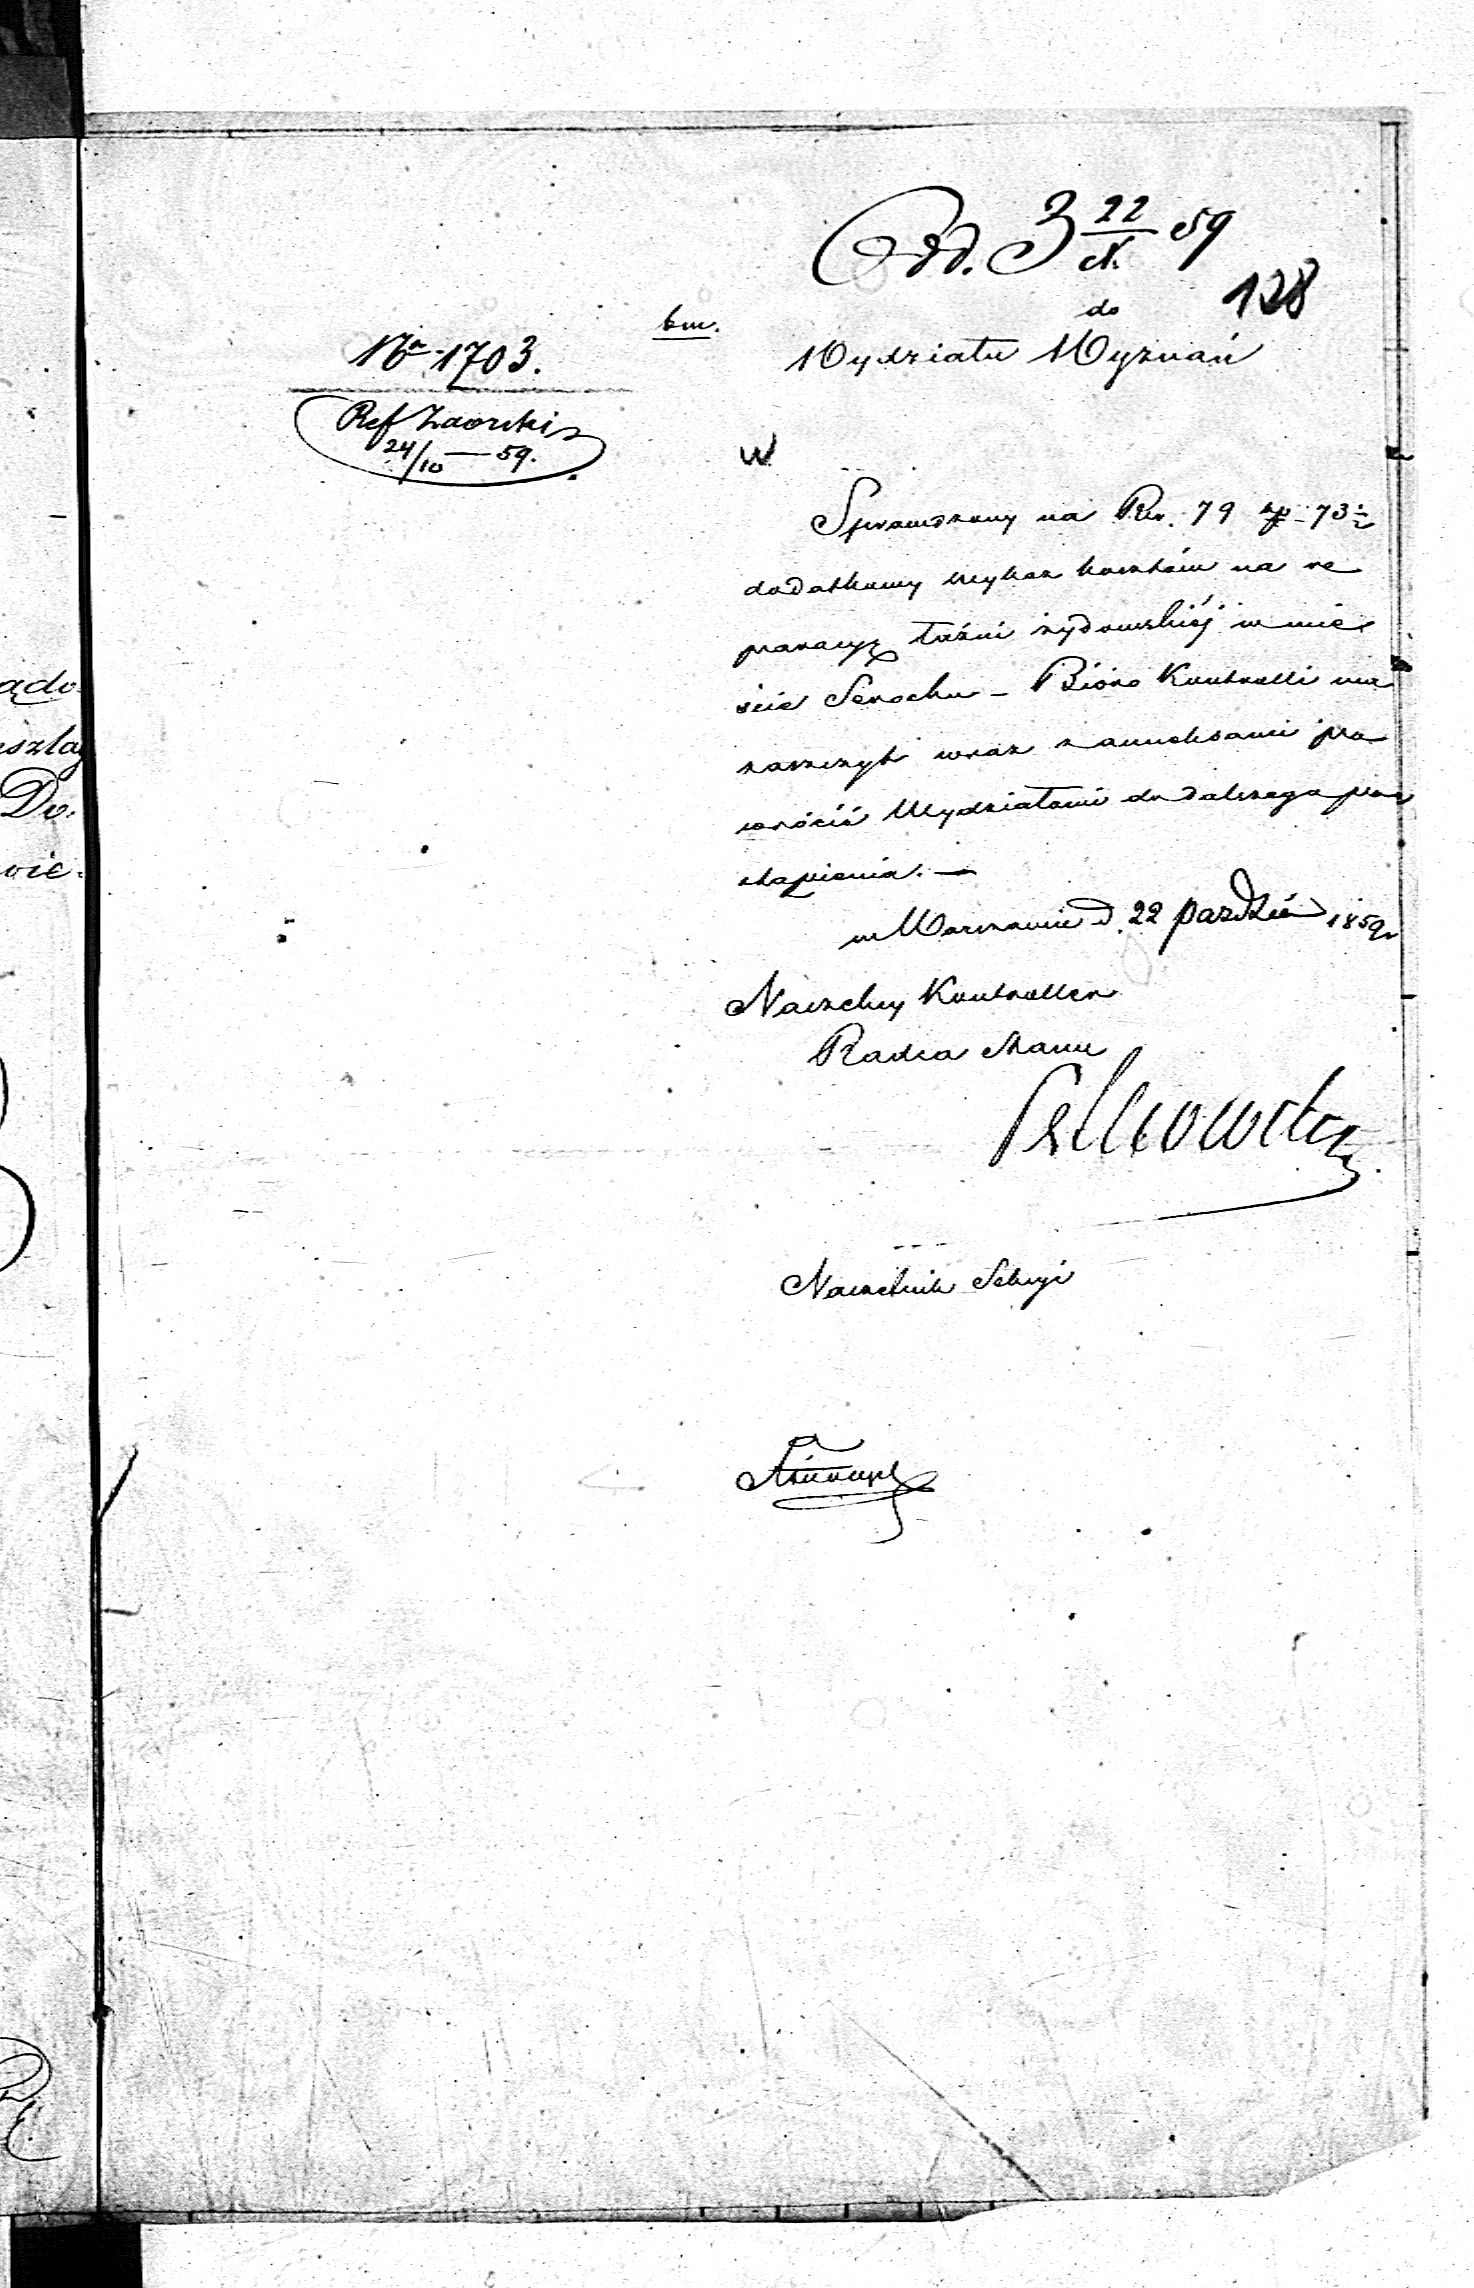 Odd. 3 22/X 59
128
do
bm.
Wydziału Wyznań
No 1703.
Ref Zaorski
24/10 — 59.
W
Sprawdzony na Rsr. 79 kp. 73½
dodatkowy wykaz kosztów na re
paracyę łaźni żydowskiéj w mie
ście Serocku – Bióro Kontrolli ma
zaszczyt wraz z annexami po
wrócić Wydziałowi do dalszego pos
tąpienia. —
w Warszawie d. 22 Paździer 1859 r
Naczelny Kontroller
Radca Stanu
Naczelnik Sekcyi
ądo
iszla
Do.
wie